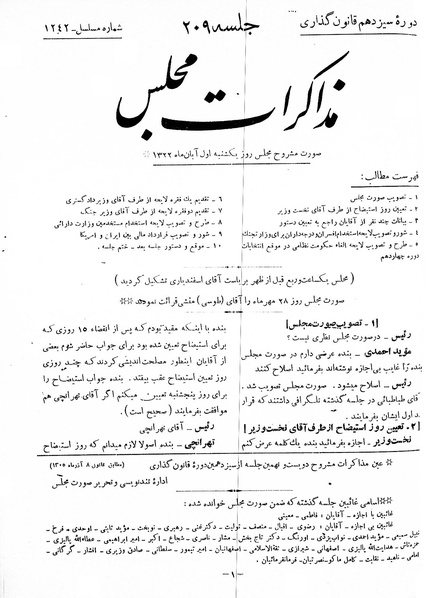 دورهٔ سیزدهم قانون گذاری
جلسه ۲۰۹
شماره مسلسل - ۱۲۴۲
مذاکرات مجلس
صورت مشروح مجلس روز یکشنبه اول آبان ماه ۱۳۲۲ *
فهرست مطالب:
۱ - تصویب صورت مجلس
۲ - تعیین روز استیضاح از طرف آقای نخست وزیر
۳ - بیانات چند نفر از آقایان راجع به تعیین دستور
۴ - شور و تصویب لایحه استخدام افسران و درجه داران برای وزارت جنگ
۵ - طرح و تصویب لایحه الغاء حکومت نظامی در موقع انتخابات
دوره چهاردهم
۶ - تقدیم یک فقره لایحه از طرف آقای وزیر دادگستری
۷ - تقدیم دو فقره لایحه از طرف آقای وزیر جنگ
۸ - طرح و تصویب لایحه استخدام مستخدمین وزارت دارائی
۹ - شور و تصویب قرارداد مالی بین ایران و امریکا
۱۰ - موقع و دستور جلسه بعد - ختم جلسه
(مجلس یکساعت و ربع قبل از ظهر بریاست آقای اسفندیاری تشکیل گردید)
صورت مجلس روز ۲۸ مهر ماه را آقای (طوسی) منشی قرائت نمودند
[۱ - تصویب صورت مجلس]
رئیس - در صورت مجلس نظری نیست؟
مؤید احمدی - بنده عرضی دارم در صورت مجلس
بنده را غایب بی اجازه نوشته‌اند بفرمائید اصلاح کنند
رئیس - اصلاح میشود. صورت مجلس تصویب شد.
آقای طباطبائی در جلسه گذشته تلگرافی داشتند که قرار
شد اول ایشان بفرمایند.
[۲ - تعیین روز استیضاح از طرف آقای نخست وزیر]
نخست وزیر - اجازه بفرمائید بنده یک کلمه عرض کنم
بنده با اینکه مقید بودم که پس از انقضاء ۱۵ روزی که
برای استیضاح تعیین شده بود برای جواب حاضر شوم بعضی
از آقایان اینطور مصلحت اندیشی کردند که چند روزی
روز تعیین استیضاح عقب بیفتد. بنده جواب استیضاح را
برای روز پنجشنبه تعیین میکنم اگر آقای تهرانچی هم
موافقت بفرمایند (صحیح است).
رئیس - آقای تهرانچی
تهرانچی - بنده اصولا لازم میدانم که روز استیضاح
* عین مذاکرات مشروح دویست و نهمین جلسه از سیزدهمین دورهٔ قانون گذاری
(مطابق قانون ۸ آذرماه ۱۳۰۵)
اداره تندنویسی و تحریر صورت مجلس
** اسامی غائبین جلسه گذشته که ضمن صورت مجلس خوانده شده:
غائبین با اجازه - آقایان: فاطمی - معینی
غائبین بی اجازه - آقایان:
- ۱ -